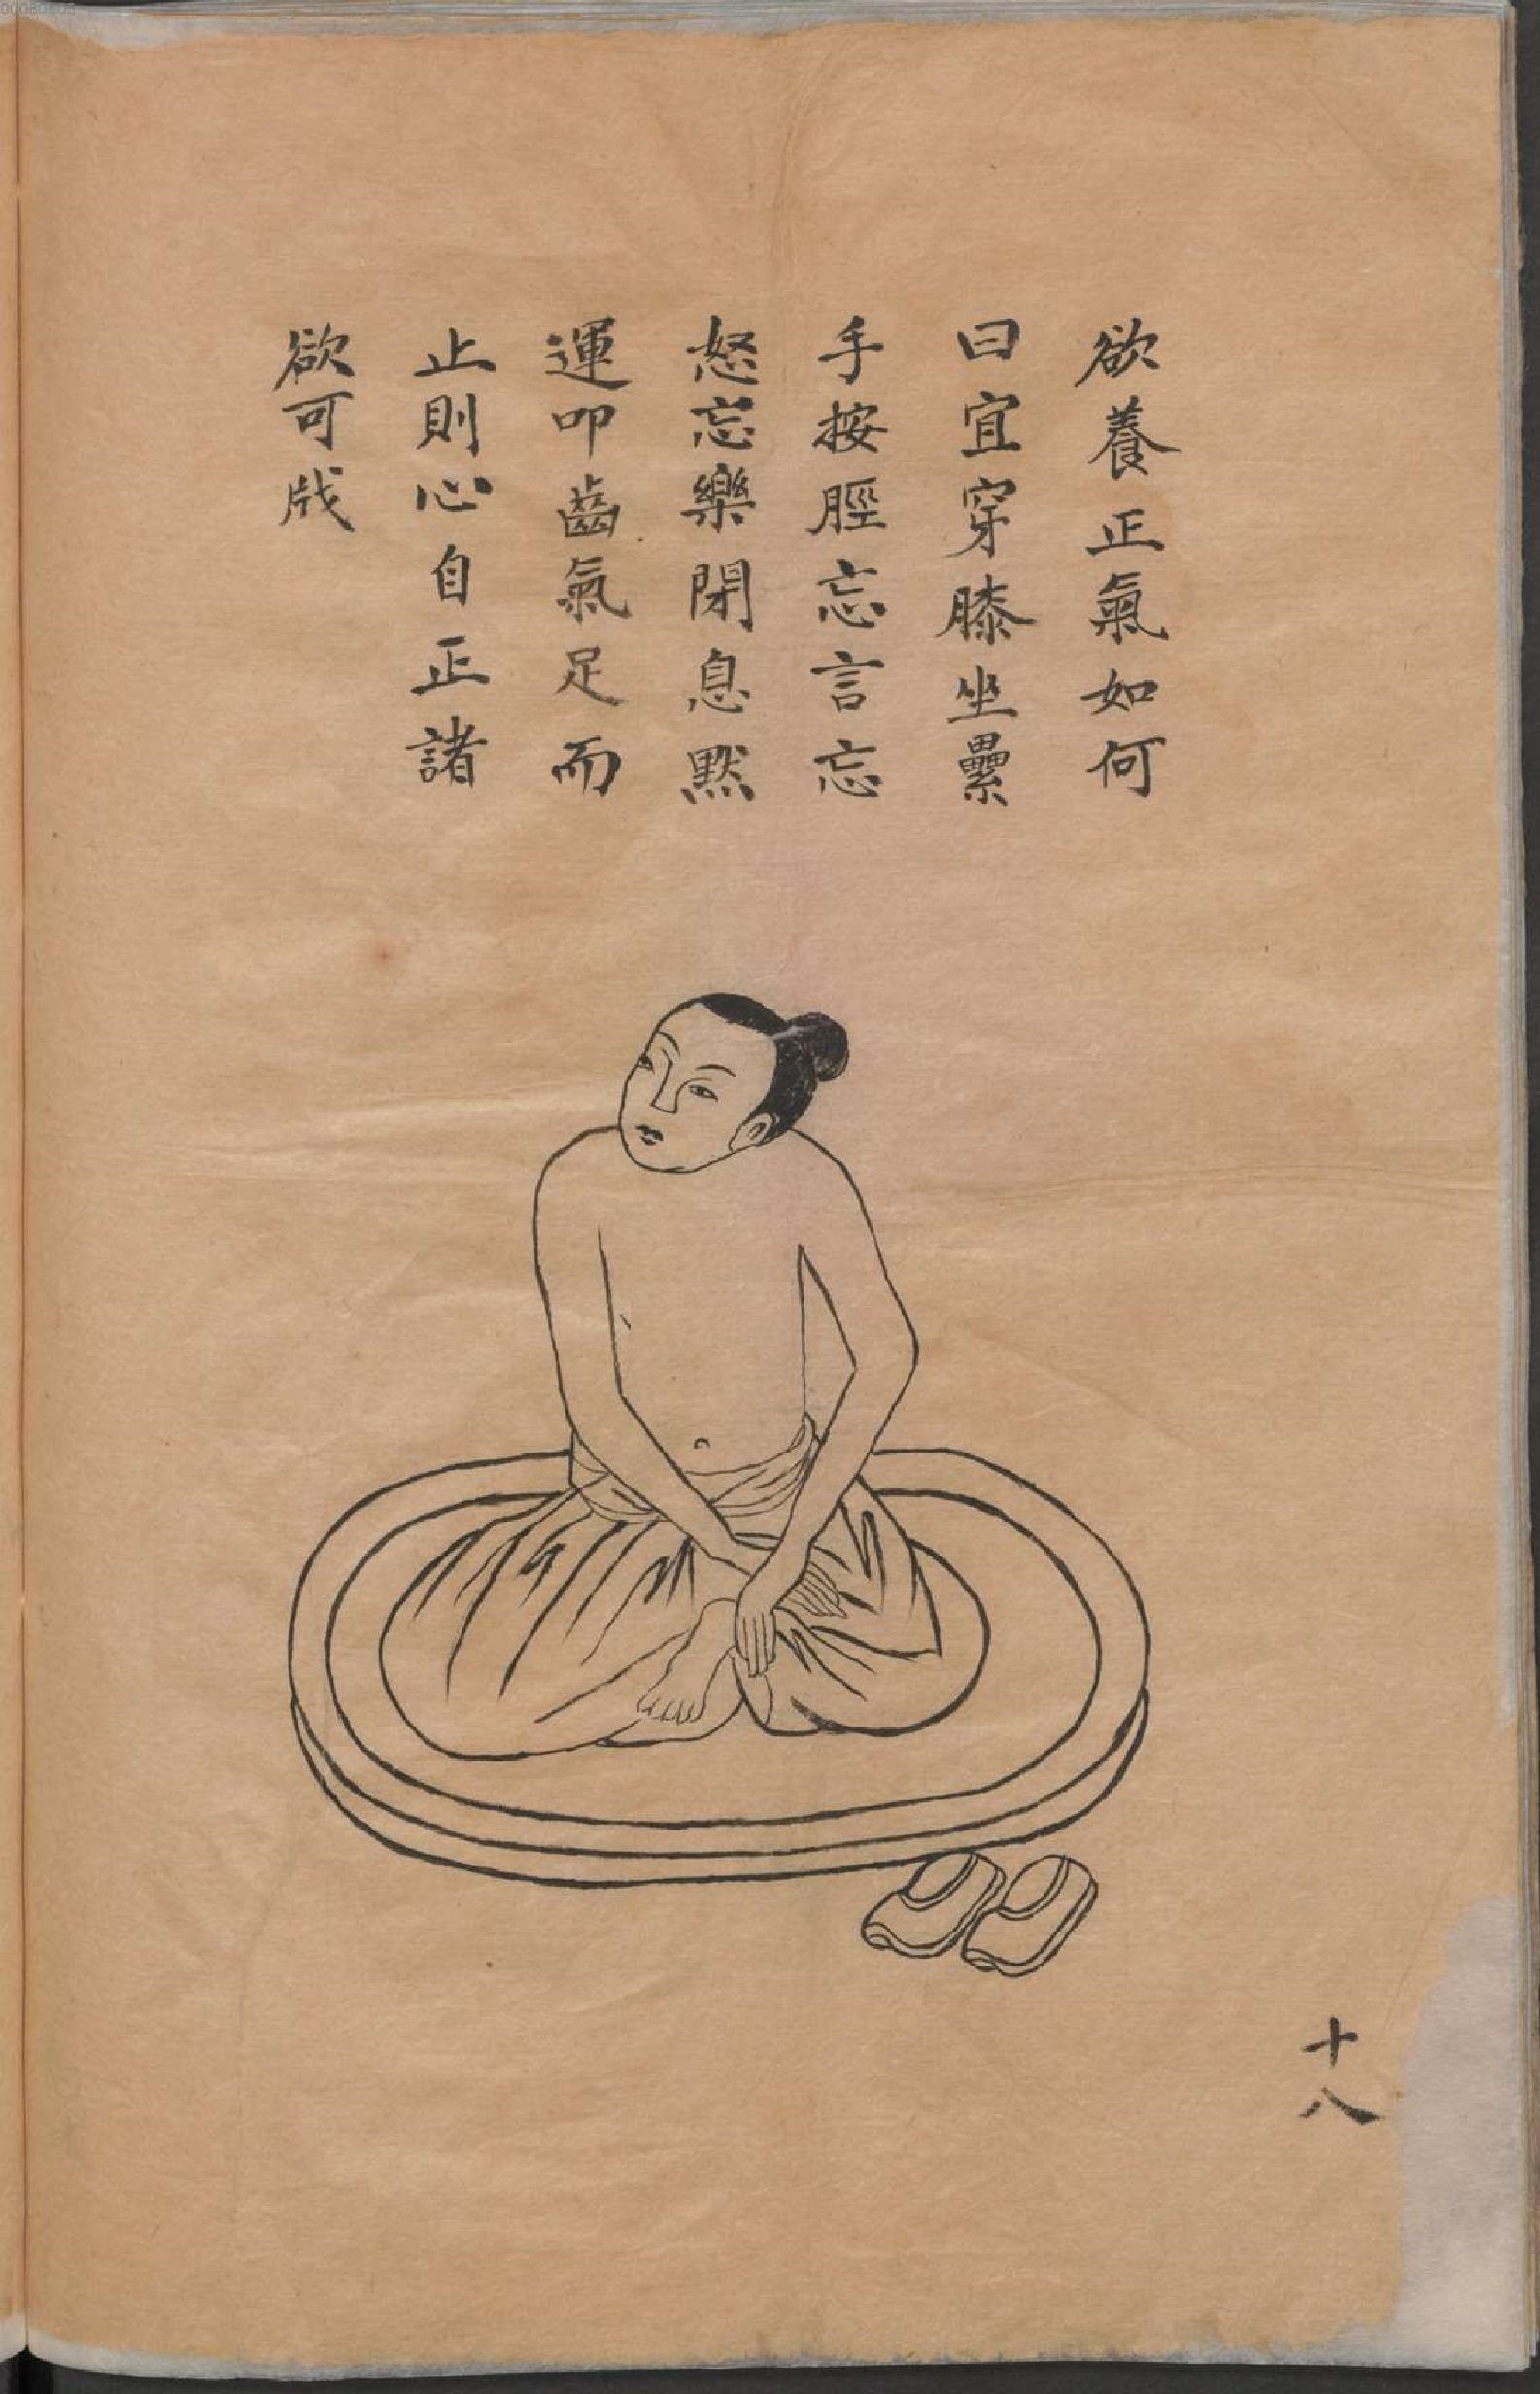 欲養正氣如何
曰宜穿膝坐纍
手按脛忘言忘
怒忘樂閉息默
運叩齒氣足而
止則心自正諸
欲可戕
十八